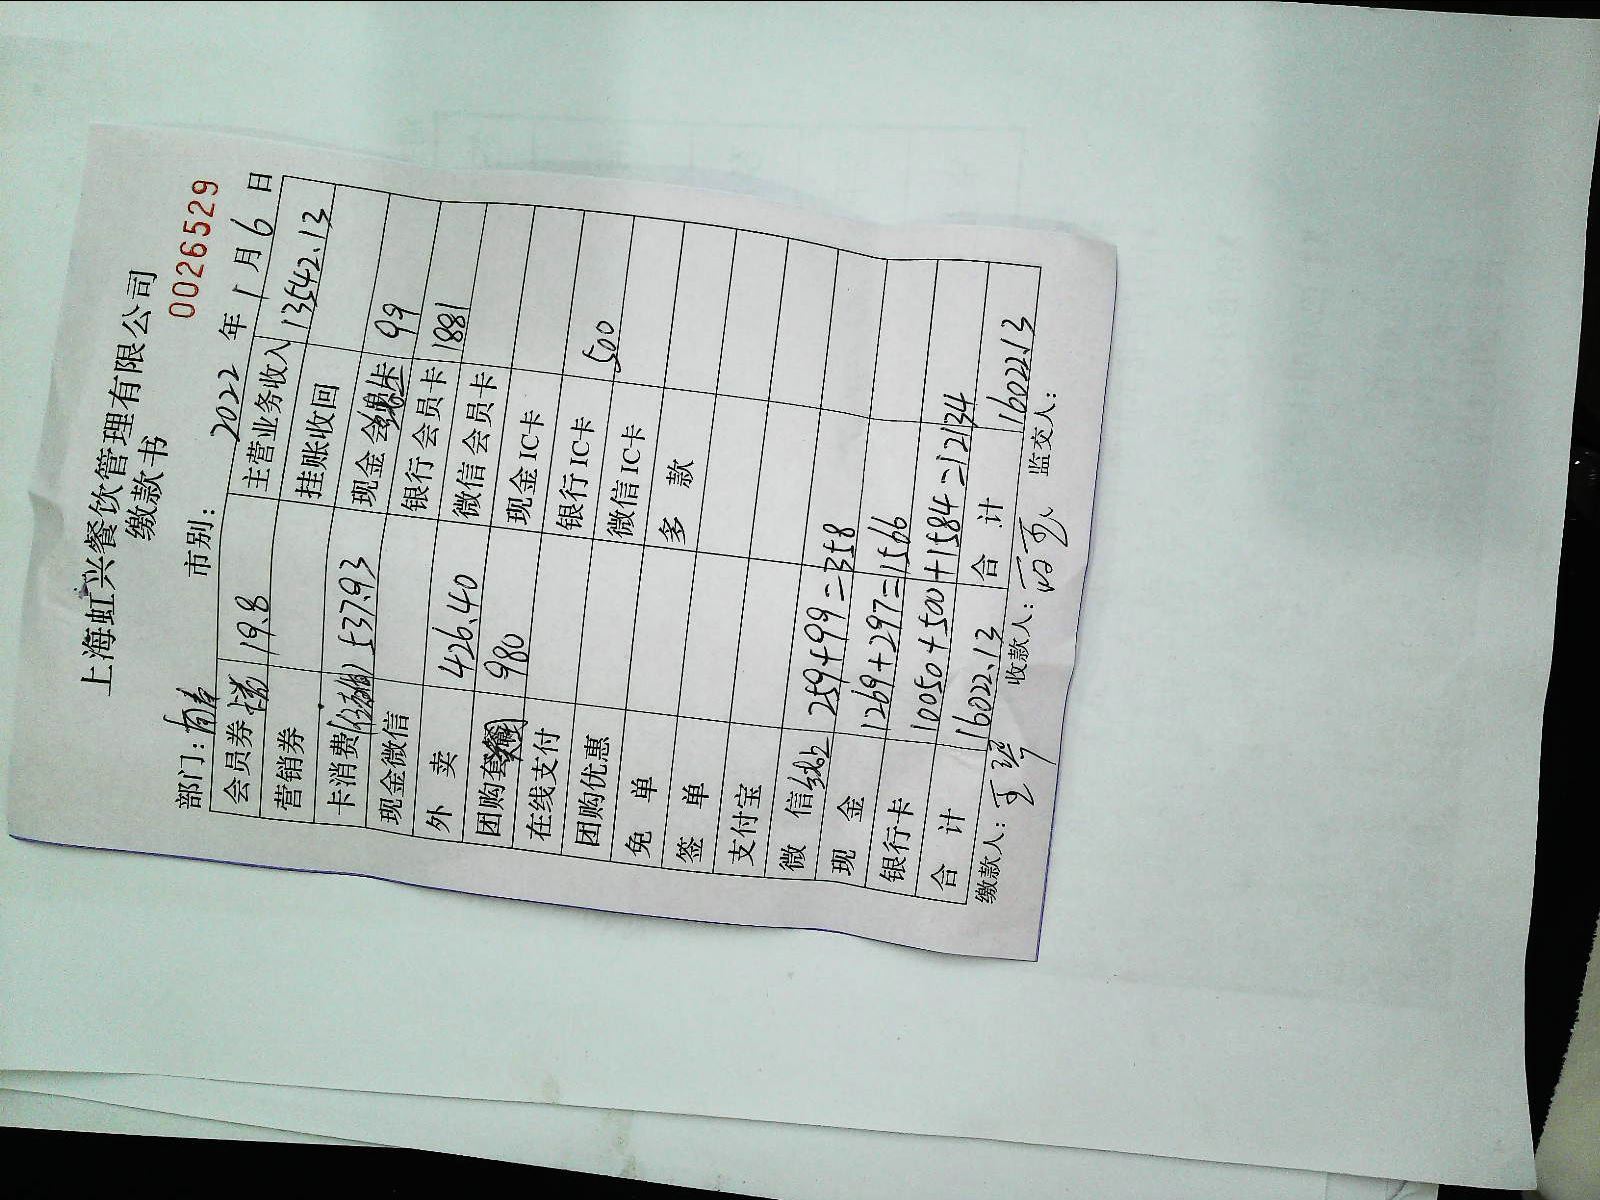 上海虹兴餐饮管理有限公司
缴款书
0026529
部门： 市别： 2022 年 1 月 6 日
会员券 19.8 主营业务收入 13542.13
营销券 挂账收回
卡消费 537.93 现金会员卡 99
现金微信 银行会员卡 1881
外 卖 426.40 微信会员卡
团购套餐 980 现金IC卡
在线支付 银行IC卡 500
团购优惠 微信IC卡
免 单 多 款
签 单
支付宝
微 信 259+99=358
现 金 1269+297=1566
银行卡 10050+500+1584=12134
合 计 16022.13 合 计 16022.13
缴款人： 收款人： 监交人：